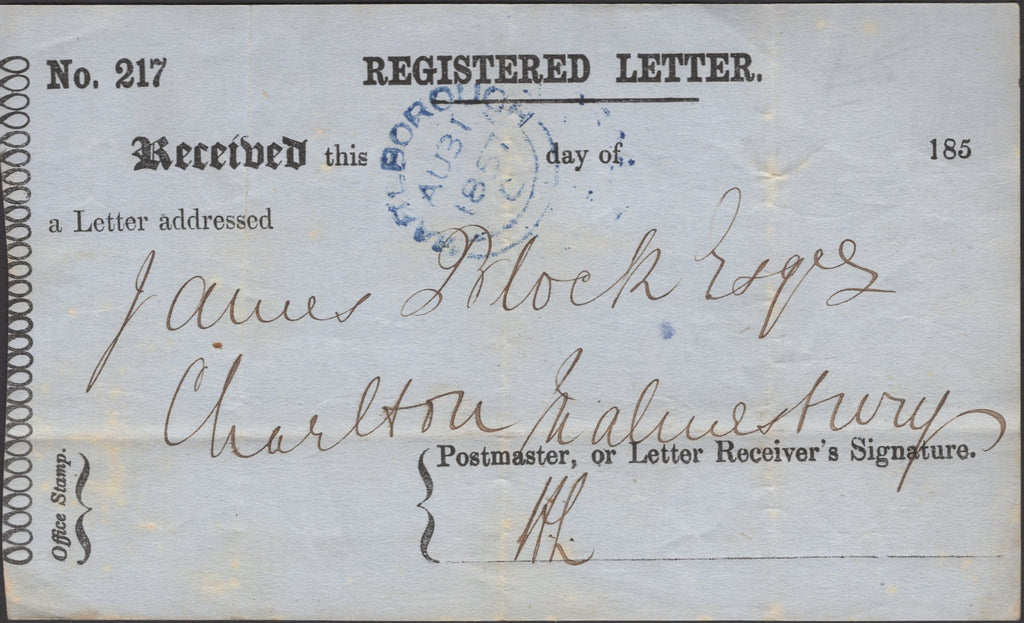 No. 217
REGISTERED LETTER.
Received this day of 185
MARLBOROUGH
AU 31
1857
C
a Letter addressed
James Block Esqre
Charlton Malmesbury
Office Stamp.
Postmaster, or Letter Receiver's Signature.